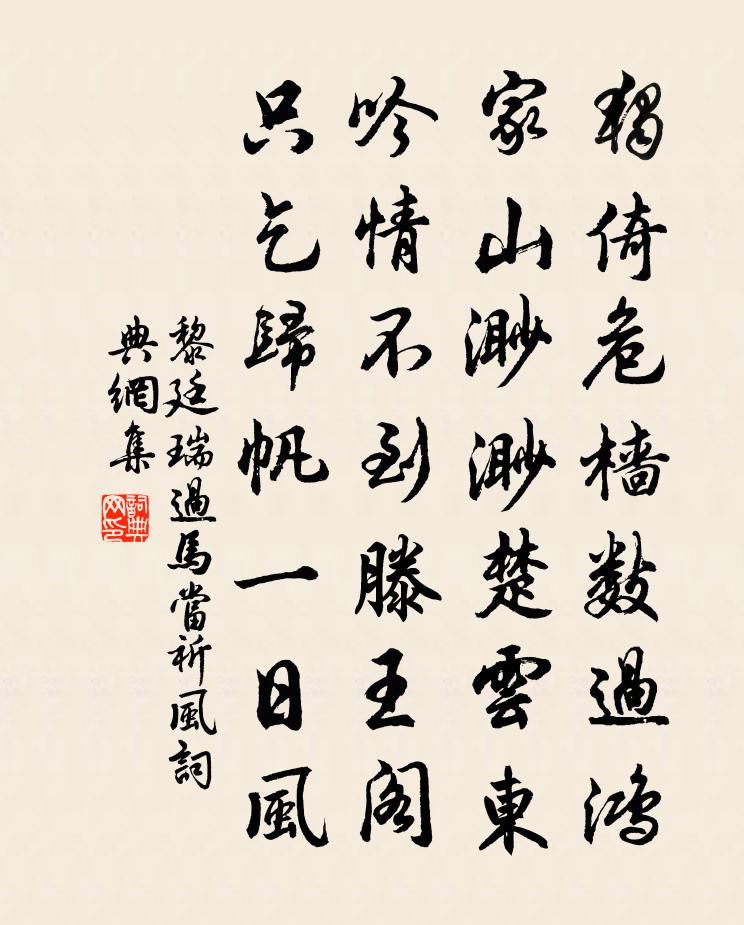 獨倚危檣數過鴻
家山渺渺楚雲東
吟情不到滕王閣
只乞歸帆一日風
黎廷瑞過馬當祈風詞
典網集
詞典網印